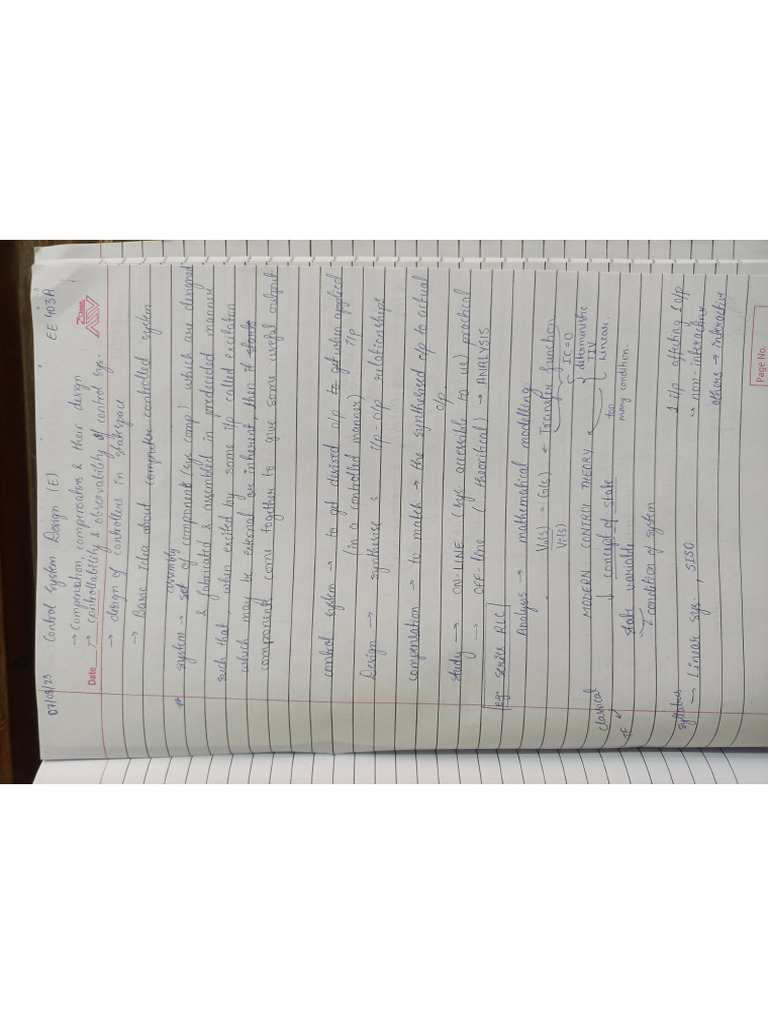 07/08/23 Control System Design (E) EE 403A
→ Compensation, compensators & their design
Date → controllability & observability of control sys.
→ design of controllers in statespace
→ Basic idea about computer controlled system
assembly
* system → set of component (sys comp) which are designed
& fabricated & assembled in predecided manner
such that, when excited by some i/p called excitation
which may be external or inherent, then it starts
component come together to give some useful output
control system → to get desired o/p to get when applied
(in a controlled manner) i/p
Design → synthesise i/p - o/p relationships
compensation → to match → the synthesised o/p to actual
o/p.
study → ON-LINE (sys. accessible to us) practical
→ OFF-line (theoritical) → ANALYSIS
eg: series RLC
Analysis → mathematical modelling
Vo(s) = G(s) ← Transfer function
Vi(s)
IC=0
deterministic
TIV
Linear.
classical MODERN CONTROL THEORY
TF ↓ concept of state too
many condition.
state variable
condition of system
syllabus
→ Linear sys., SISO 1 i/p affecting 1 o/p
↳ non-interacting
others → interactive
Page No.